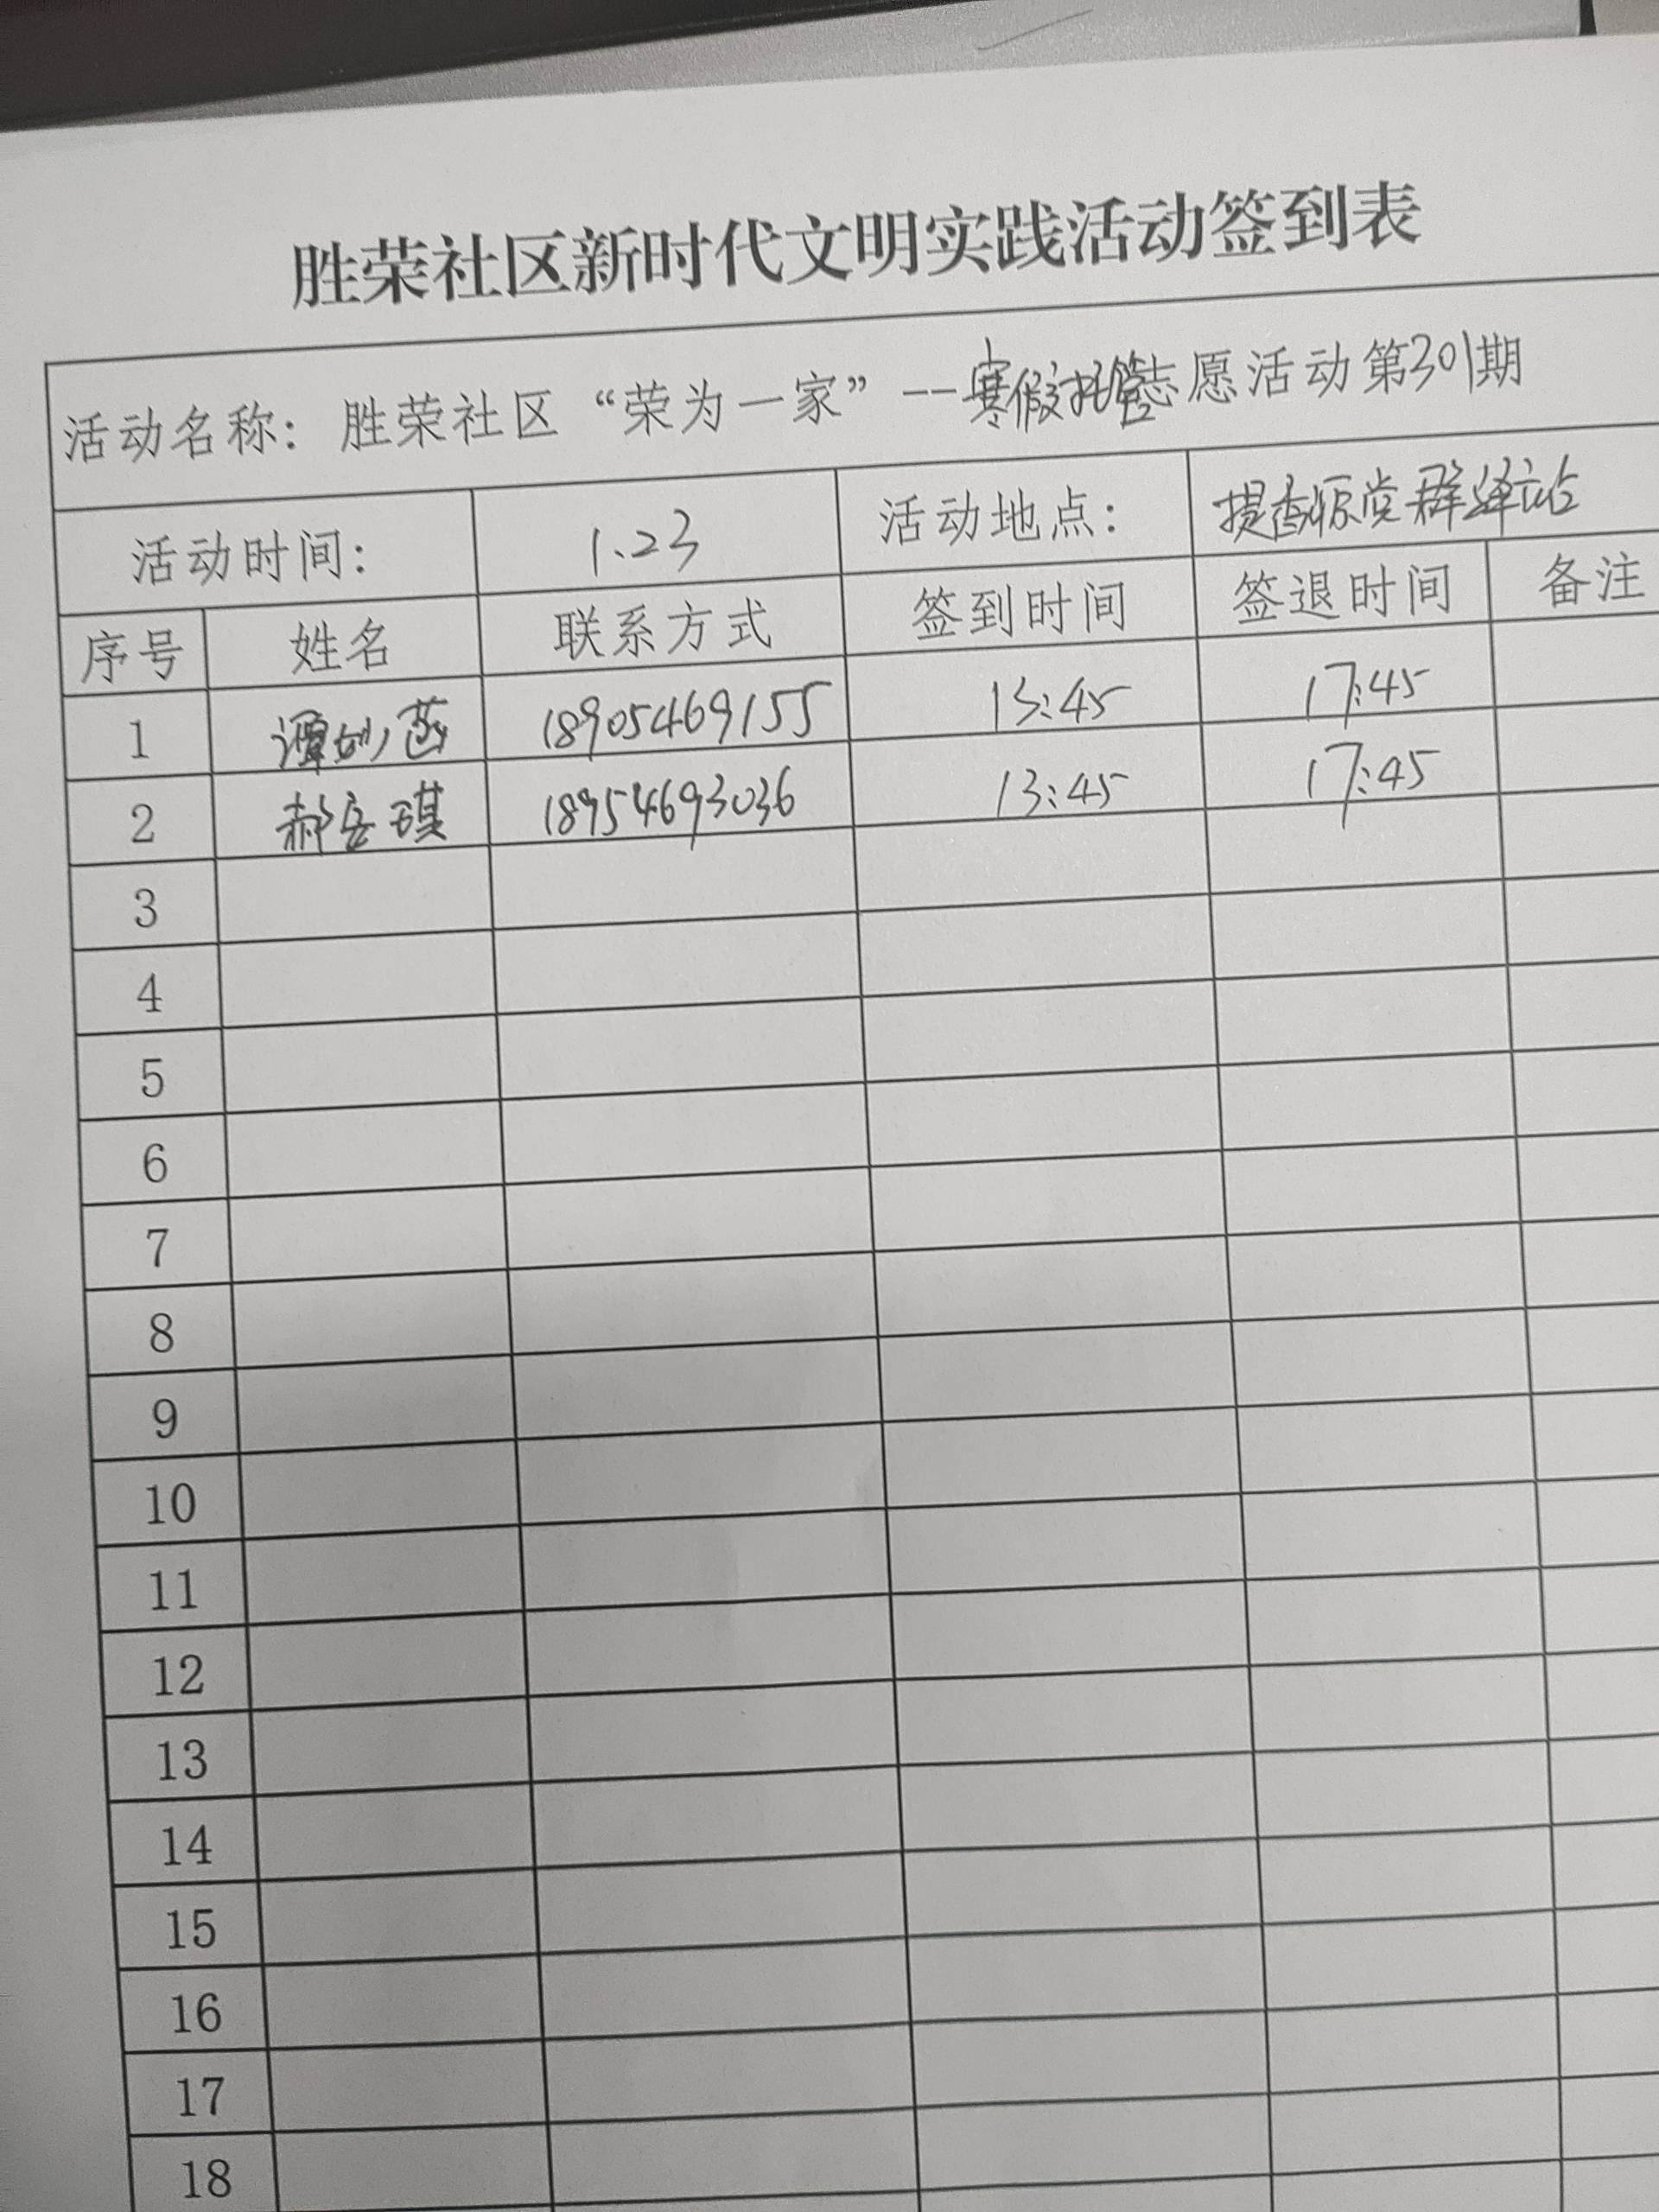 胜荣社区新时代文明实践活动签到表
活动名称：胜荣社区“荣为一家”--寒假托管志愿活动第301期
活动时间： 1.23 活动地点： 提香源党群驿站
序号 姓名 联系方式 签到时间 签退时间 备注
1 谭妙菡 18905469155 13:45 17:45
2 郝 琪 18954693036 13:45 17:45
3
4
5
6
7
8
9
10
11
12
13
14
15
16
17
18